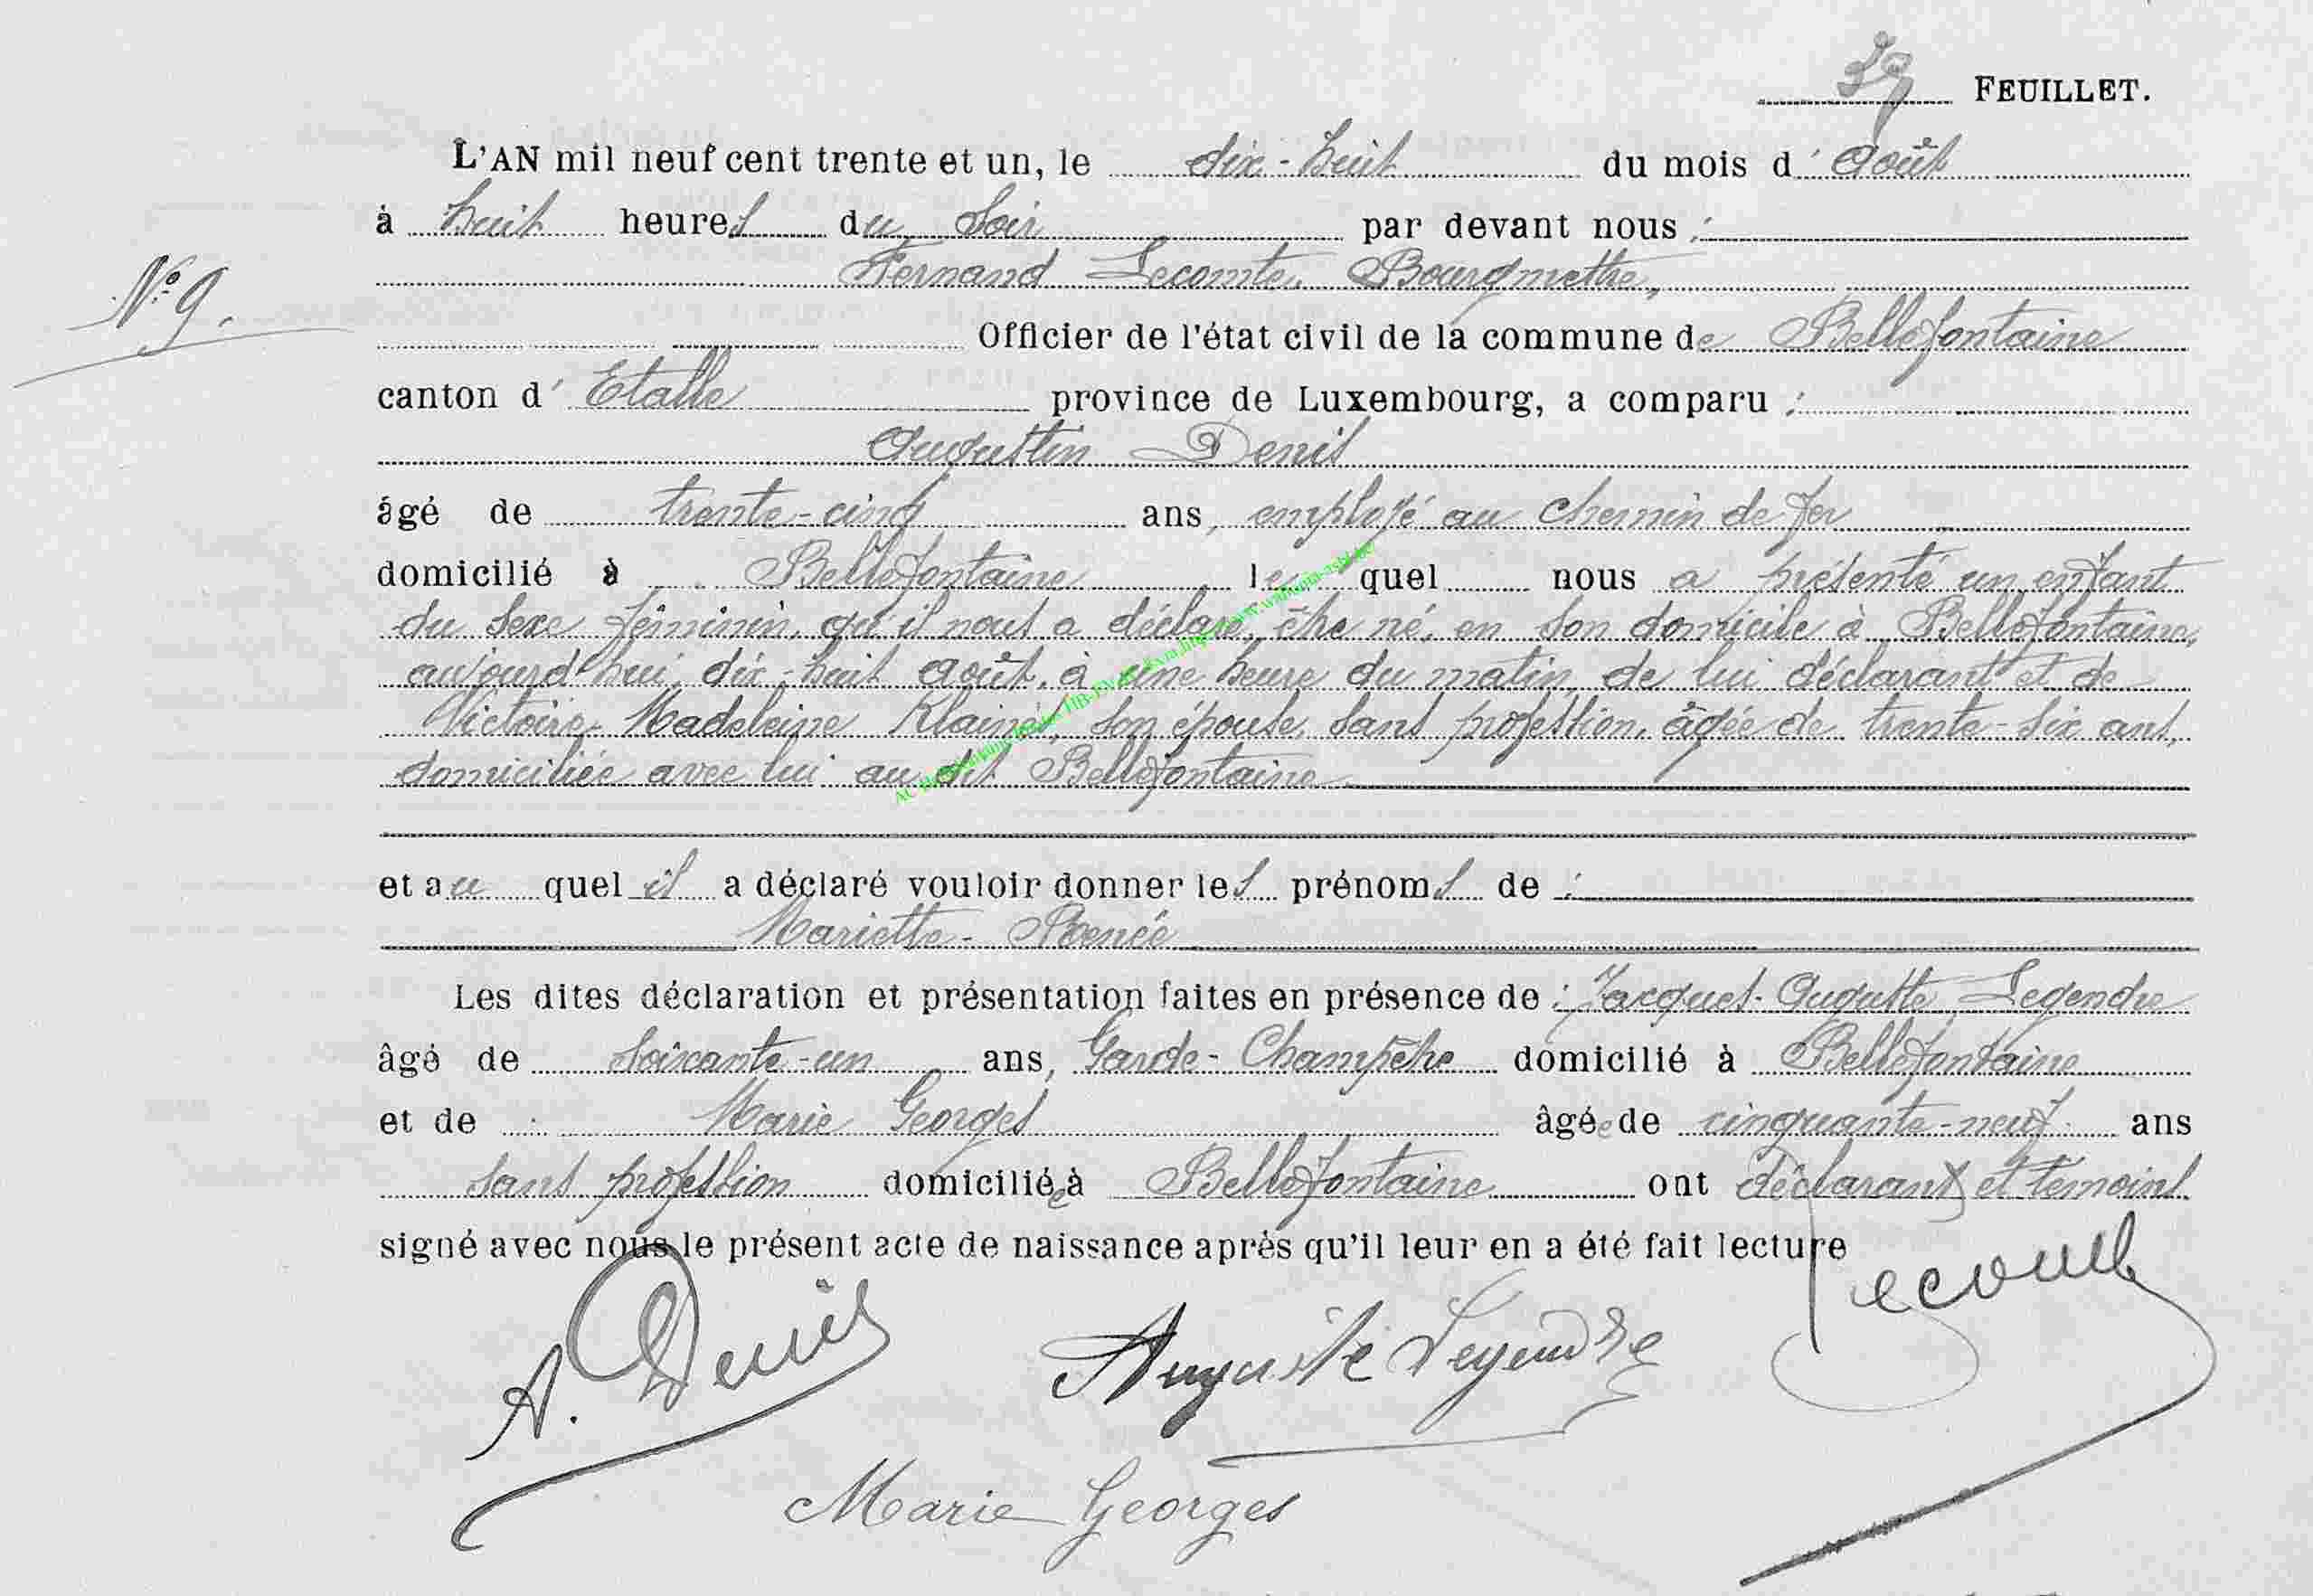 59 FEUILLET.
L'AN mil neuf cent trente et un, le dix-huit du mois d' Août
à huit heures du Soir par devant nous :
Fernand Lecomte, Bourgmethre,
N° 9.
Officier de l'état civil de la commune de Bellefontaine
canton d' Etalle province de Luxembourg, a comparu :
Augustin Denis
âgé de trente-cinq ans, employé au Chemin de fer
domicilié à Bellefontaine lequel nous a présenté un enfant
du sexe féminin, qu'il nous a déclaré, être né, en son domicile à Bellefontaine,
aujourd'hui, dix-huit Août, à une heure du matin, de lui déclarant et de
Victoire-Madeleine Klainet, son épouse, sans profession, âgée de trente-six ans,
domiciliée avec lui au dit Bellefontaine
et au quel il a déclaré vouloir donner les prénoms de :
Mariette-Renée
Les dites déclaration et présentation faites en présence de : Jacques-Auguste Legendre
âgé de soixante-un ans, Garde-Champêtre domicilié à Bellefontaine
et de : Marie Georges âgée de cinquante-neuf ans
sans profession domiciliée à Bellefontaine ont déclarant et témoins
signé avec nous le présent acte de naissance après qu'il leur en a été fait lecture
Lecomte
A. Denis
Auguste Legendre
Marie Georges